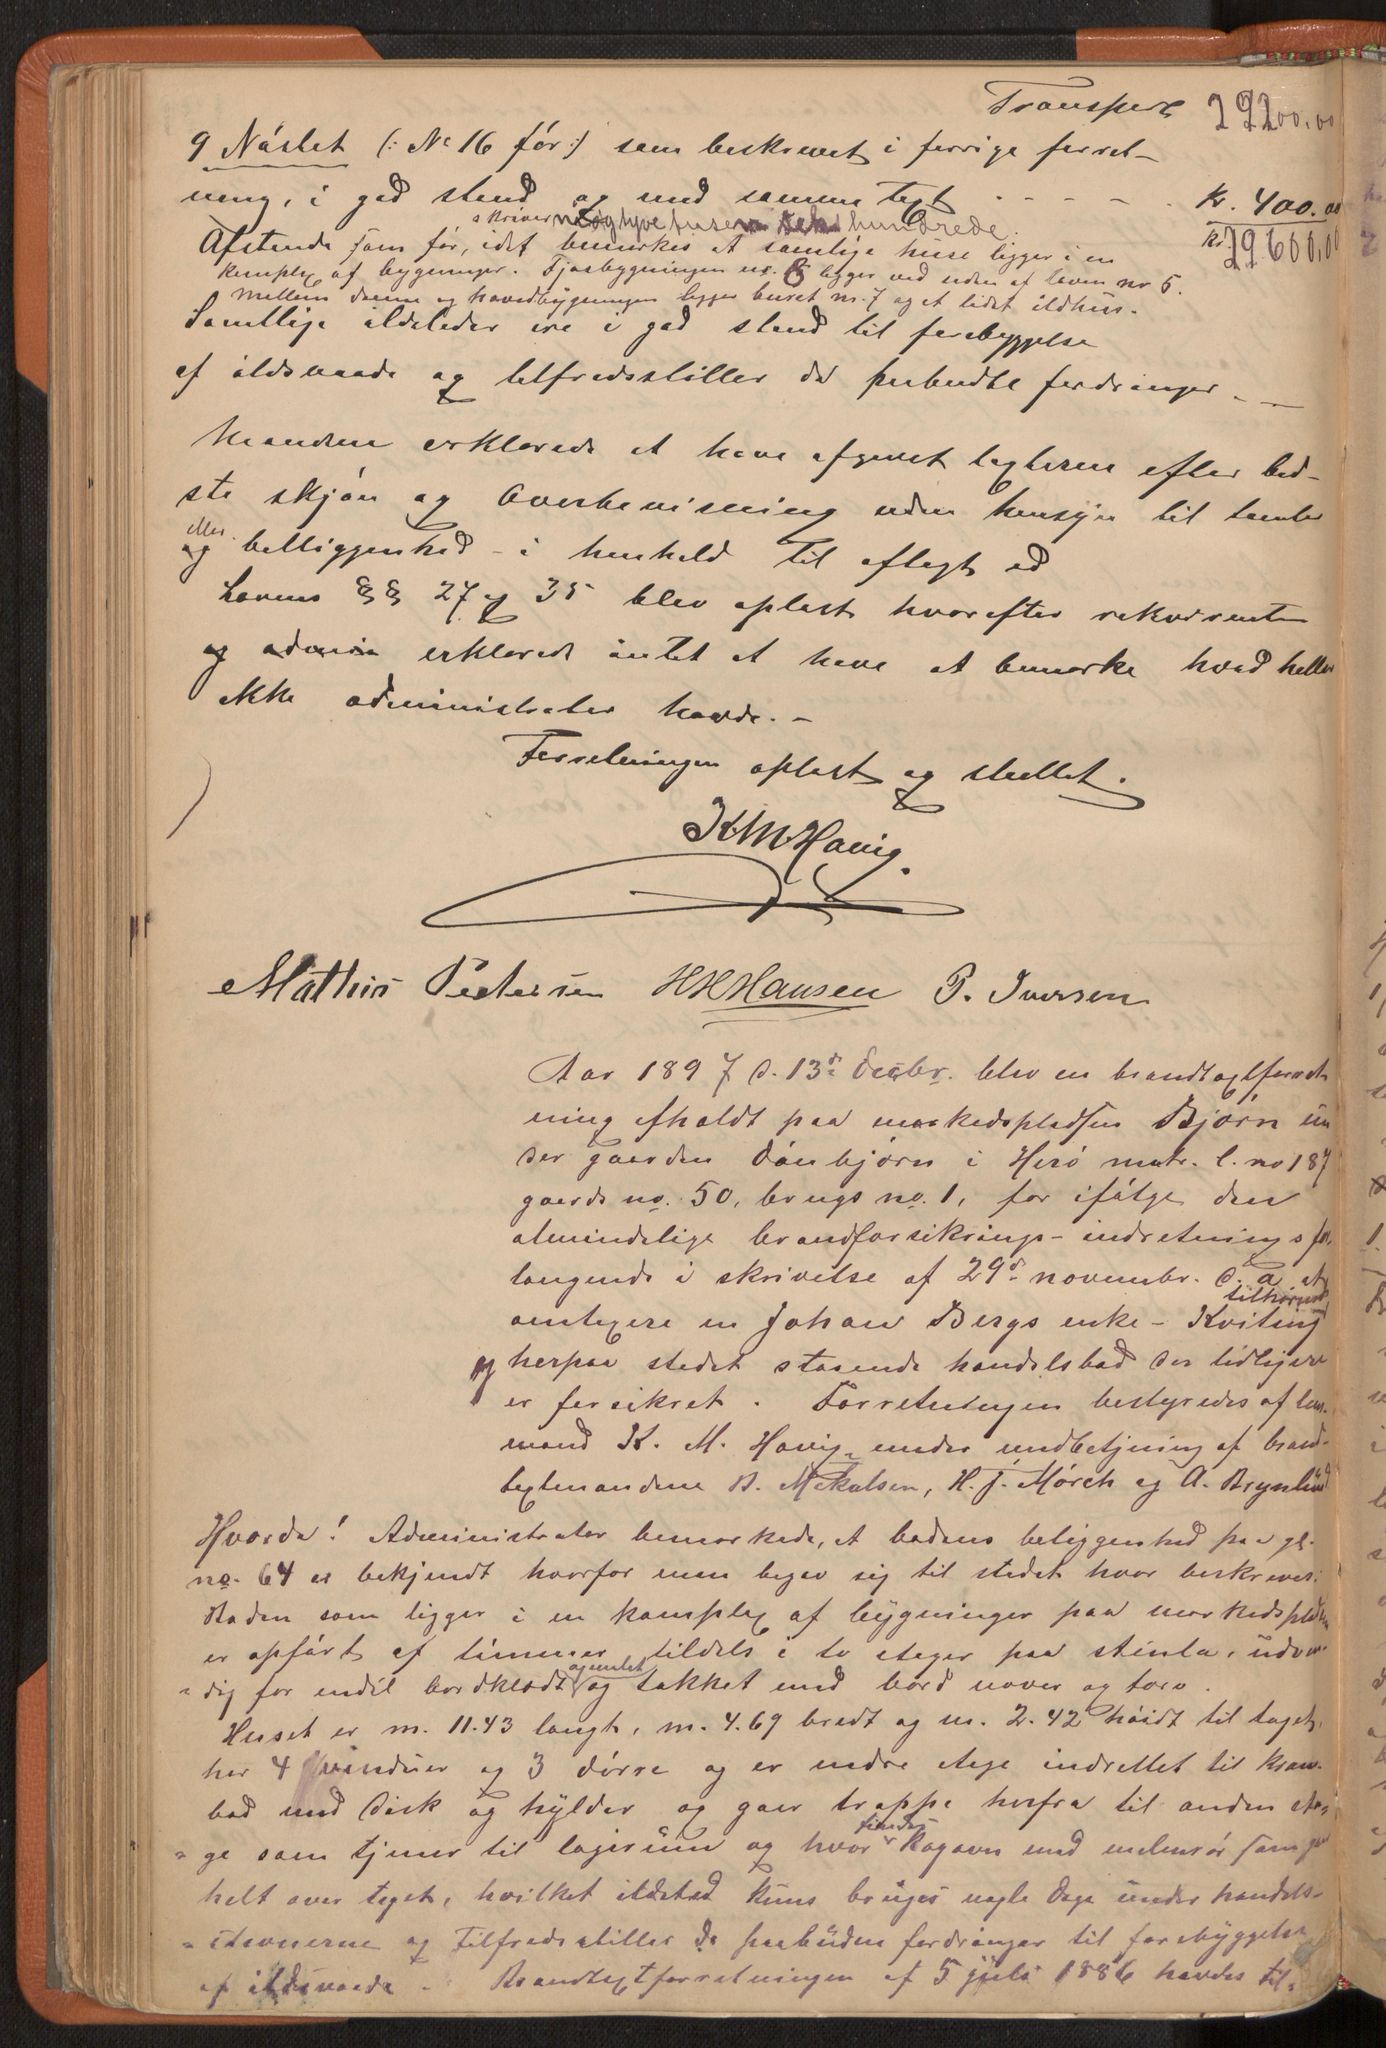 Transport 29200.00
9 Nástet (: No 16 før:) som beskrevet i forrige forret-
ning, i god stand og med samme tagt - - - - . Kr. 400.00
skriver niogtyvetusen seks hundrede. Kr. 29600,00
Afstande som før, idet bemærkes at samtlige huse ligger i en
komplex af bygninger. Fjøsbygningen no. 8 ligger ved enden af laven no 5.
Mellem denne og hovedbygningen ligger buret no. 7 og et lidet ildhus.
Samtlige ildsteder ere i god stand til forebyggelse
af ildsvaade og tilfredsstiller de paabudte fordringer. —
Mændene erklærede at have afgivet taxterne efter bed-
ste skjøn og overbevisning uden hensyn til tomter
og eller beliggenhed - i henhold til aflagt ed
Lovens §§ 27 og 35 blev oplæst hvorefter rekvirenten
og admin erklærede intet at have at bemærke hvad heller
ikke administrator havde. —
Forretningen oplæst og sluttet.
K M Havig.
Mathis Pedersen H H Hansen P. Iversen
Aar 1897 d. 13de decbr. blev en brandtaxtforret
ning afholdt paa markedspladsen Bjørn un
der gaarden Dønbjørn i Herø matr. l. no 187
gaards no. 50, brugs no. 1, for ifølge den
almindelige brandforsikrings-indretnings for
langende i skrivelse af 29de novembr. d. a. at
omtaxere en Johan Bergs enke - Kviting tilhørende
og herpaa stedet staaende handelsbod der tidligere
er forsikret. Forretningen bestyredes af lens-
mand K. M. Havig under medbetjening af brand-
taxtmændene B. Mikalsen, H. J. Mørch og A. Brynlund
Hvorda! Administrator bemærkede, at bodens beliggenhed paa pl.
no. 64 er bekjendt hvorfor man begav sig til stedet hvor beskreves:
Boden som ligger i en komplex af bygninger paa markedspladsen
er opført af tømmer tildels i to etager paa stenla, udven-
dig for endel bordklædt og malet og takket med bord never og torv.
Huset er m. 11.43 langt, m. 4.69 bredt og m. 2.42 høidt til taget,
har 4 vinduer og 3 dørre og er nedre etage indrettet til kram-
bod med disk og hylder og gaar trappe herfra til anden eta-
ge som tjener til lagerrum og hvor findes kogovn med malmrør som gaar
helt over taget, hvilket ildsted kuns bruges nogle dage under handels-
stevnerne og tilfredsstiller de paabudne fordringer til forebyggelse
af ildsvaade. Brandtaxtforretningen af 5 juli 1886 havdes til-